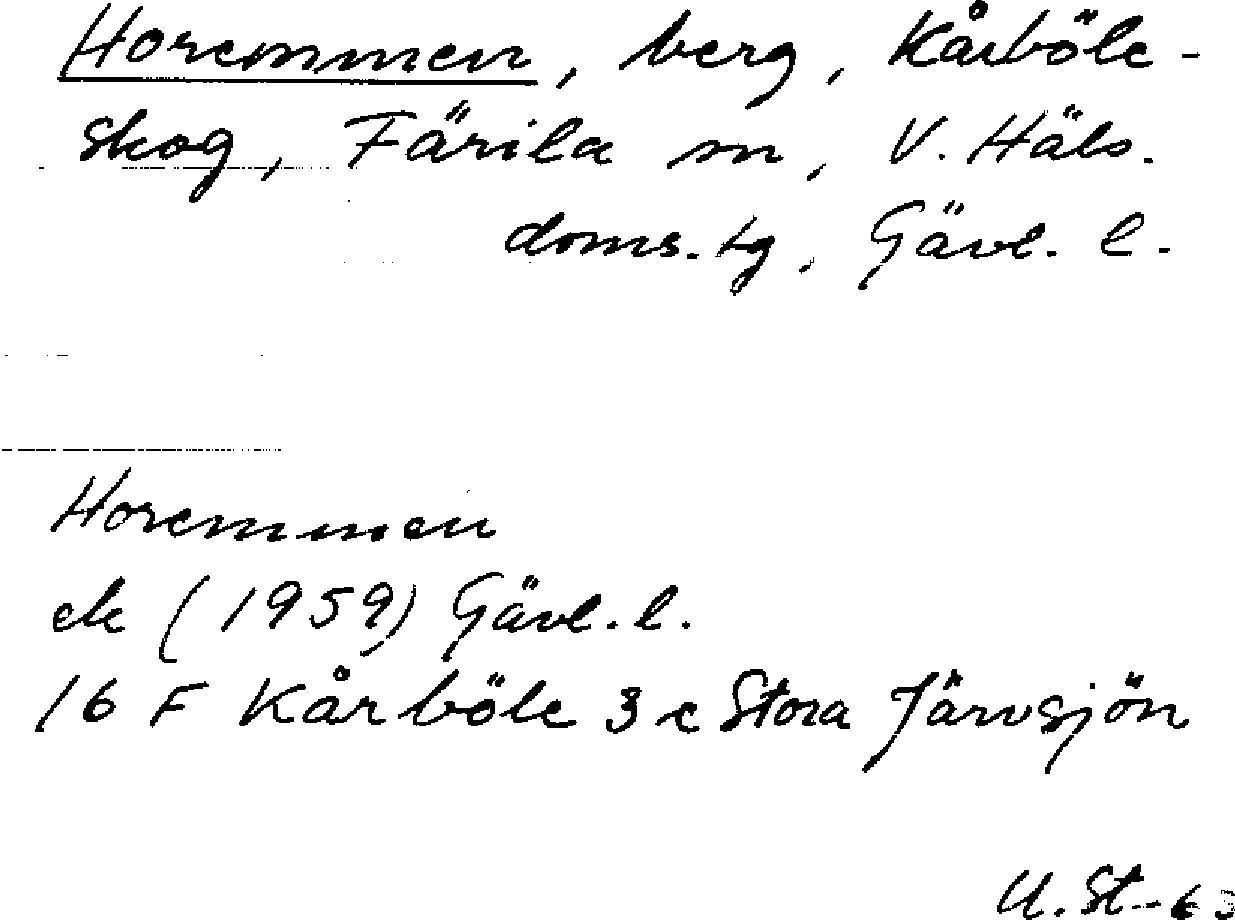 Horemmen, berg, Kårböle-
skog, Färila sn, V. Häls.
doms. tg, Gävl. l.
Horemmen
ek (1959) Gävl. l.
16 F Kårböle 3 c Stora Järvsjön
U. St-63